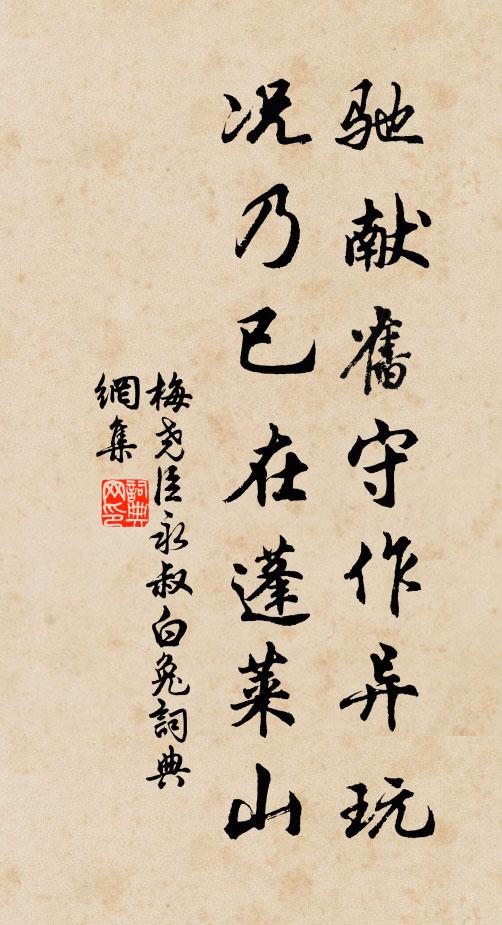 驰献舊守作异玩
况乃已在蓬莱山
梅尧臣永叔白兔詞典
網集
詞典
网印